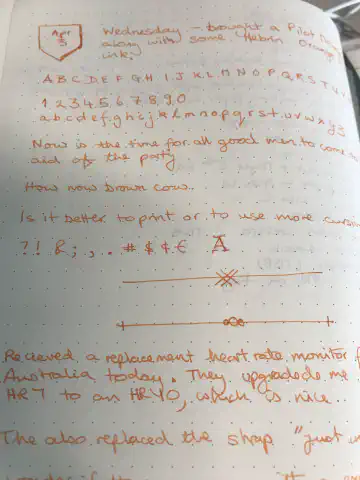 Apr
5
Wednesday - brought a Pilot
along with some Herbin Orange
ink.
A B C D E F G H I J K L M N O P Q R S T U V
1 2 3 4 5 6 7 8 9 0
a b c d e f g h i j k l m n o p q r s t u v w x y z
Now is the time for all good men to come
aid of the party
How now brown cow.
Is it better to print or to use more
? ! & ; , . . # $ ¢ € Ā
Recieved a replacement heart rate monitor
Australia today. They upgraded me
HR7 to an HR40, which is nice..
The also replaced the strap "just